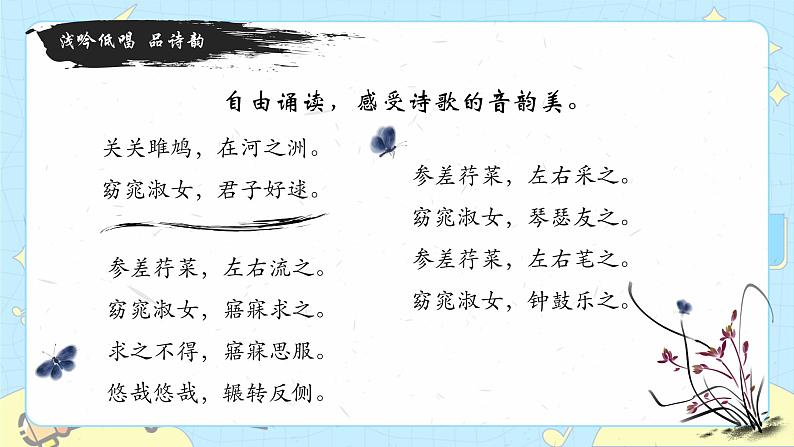 浅吟低唱 品诗韵
自由诵读，感受诗歌的音韵美。
关关雎鸠，在河之洲。
窈窕淑女，君子好逑。
参差荇菜，左右流之。
窈窕淑女，寤寐求之。
求之不得，寤寐思服。
悠哉悠哉，辗转反侧。
参差荇菜，左右采之。
窈窕淑女，琴瑟友之。
参差荇菜，左右芼之。
窈窕淑女，钟鼓乐之。